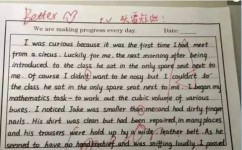 Better
We are making progress every day. Date:
I was curious because it was the first time I had meet
from a circus. Luckily for me, the next morning after being
introduced to the class he sat in the only spare seat next to
me. Of course I didn't want to be nosy but I couldn't to
the class he sat in the only spare seat next to me. I began my
mathematics task - to work out the cubic volume of various
buses. I noticed Jake was smaller than me and had dirty finger
nails. His shirt was clean but had been repaired in many places
and his trousers were hold up by a wide leather belt. As he
seemed to have no handkerchief and was sniffing loudly I passed